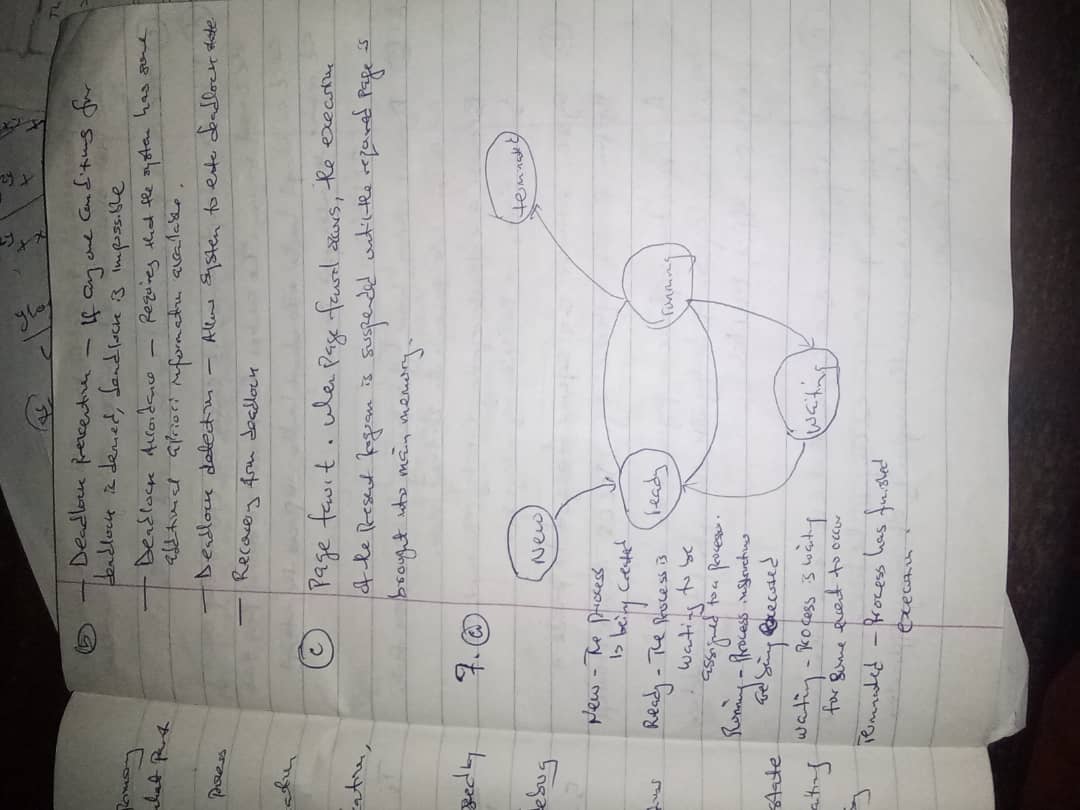 (b) — Deadlock prevention — If any one conditions for
deadlock is denied, deadlock is impossible
— Deadlock Avoidance — Requires that the system has some
additional apriori information available.
— Deadlock detection — Allow system to enter deadlock state
— Recovery from deadlock
(c) Page fault. when Page fault occurs, the execution
of the Present Program is suspended until the required Page is
brought into main memory.
7. (a)
New
ready
running
terminated
waiting
New - The Process
is being Created
Ready - The Process is
waiting to be
assigned to a process.
Running - Process instructions
are being executed
Waiting - Process is waiting
for some event to occur
Terminated - Process has finished
execution.
process
debug
state